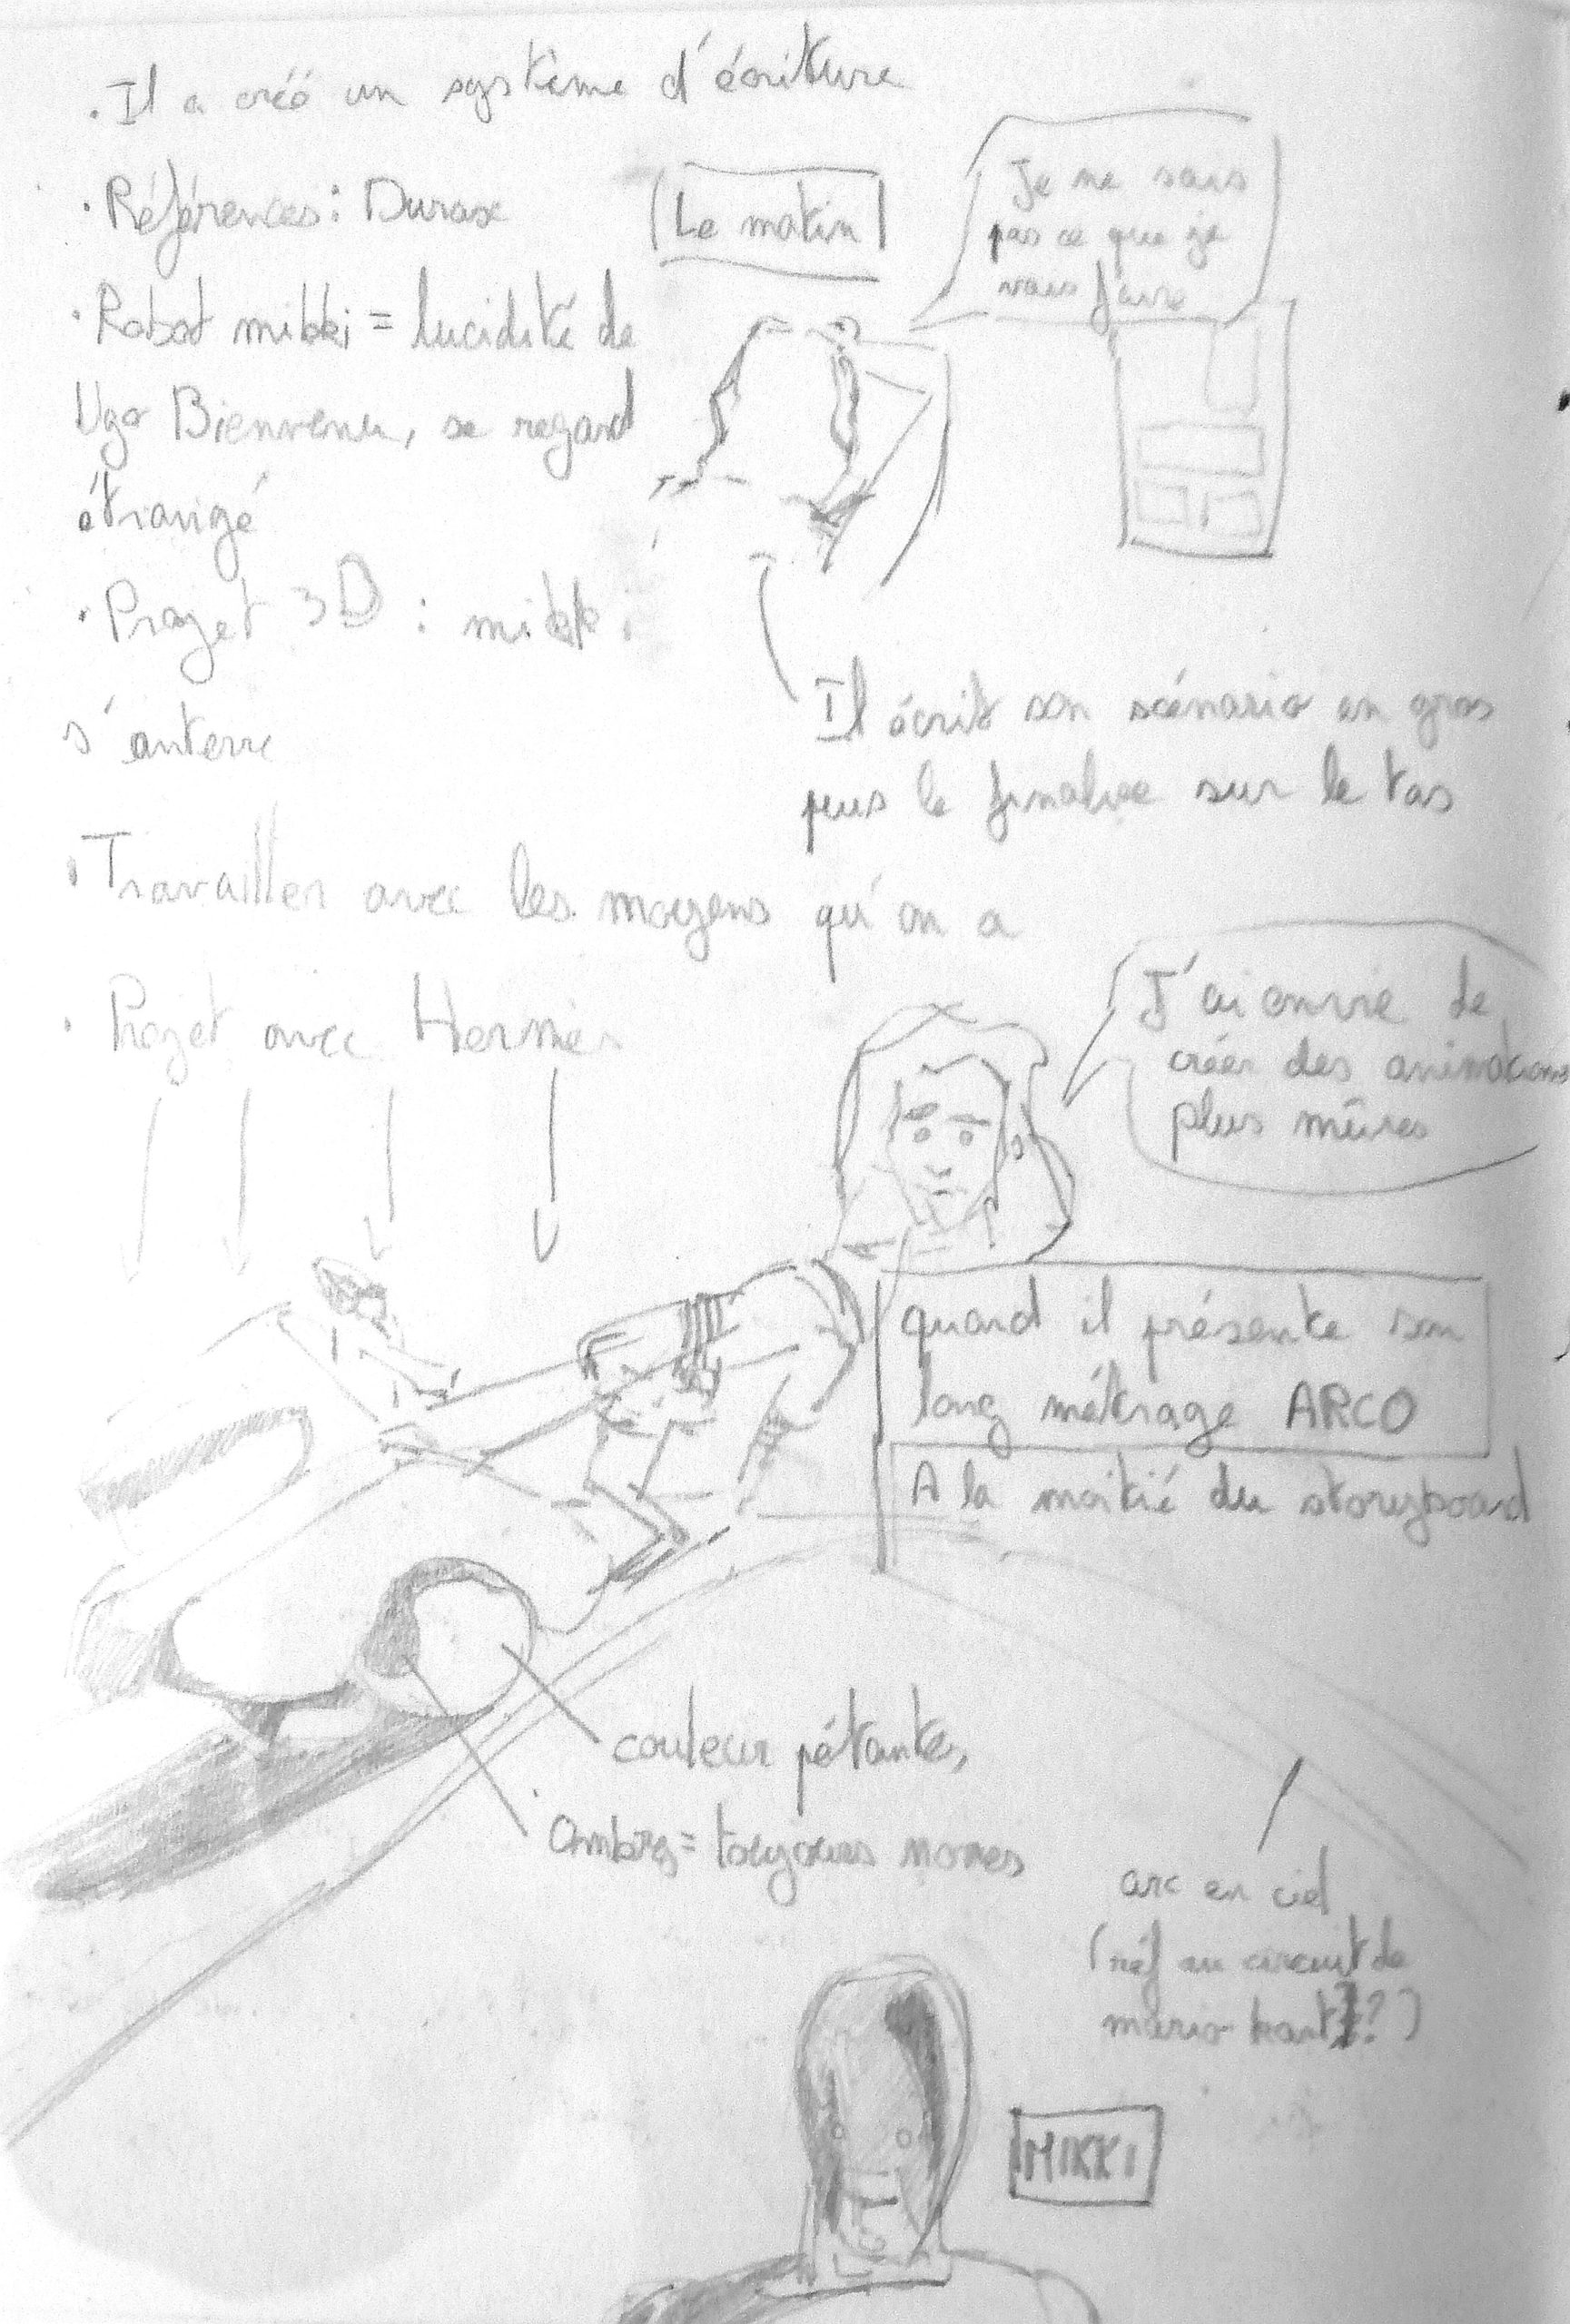 . Il a créé un système d'écriture
· Références : Durax
Le matin
Je ne sais
pas ce que je
vais faire
· Robot mikki = lucidité de
Ugo Bienvenu, se regard
étrangé
· Projet 3D : mikki
s'enterre
Il écrit son scénario en gros
puis le finalise sur le tas
· Travailler avec les moyens qu'on a
· Projet avec Hermès
J'ai envie de
créer des animations
plus mûres
quand il présente son
long métrage ARCO
A la moitié du storyboard
couleur pétante,
Ombres = toujours noires
arc en ciel
(réf au circuit de
mario kart ?)
MIKKI